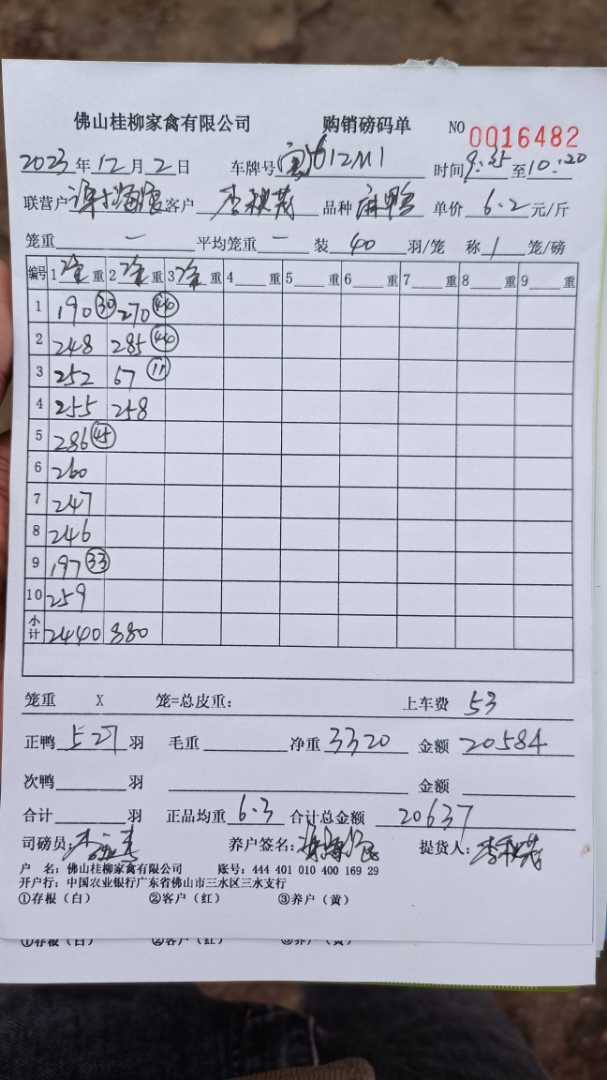 佛山桂柳家禽有限公司 购销磅码单 NO 0016482
2023年12月2日 车牌号 612M1 时间9:35至10:20
联营户 客户 李秋茂 品种 麻鸭 单价 6.2 元/斤
笼重 — 平均笼重 — 装 40 羽/笼 称 1 笼/磅
编号 1 重 2 重 3 重 4 重 5 重 6 重 7 重 8 重 9 重
1 190 30 270 44
2 248 285 46
3 252 67 11
4 255 258
5 286 45
6 260
7 247
8 246
9 197 33
10 259
小计 2440 880
笼重 X 笼=总皮重: 上车费 53
正鸭 527 羽 毛重 净重 3320 金额 20584
次鸭 羽 金额
合计 羽 正品均重 6.3 合计总金额 20637
司磅员: 养户签名: 提货人: 李秋茂
户 名: 佛山桂柳家禽有限公司 账号: 444 401 010 400 169 29
开户行: 中国农业银行广东省佛山市三水区三水支行
①存根（白） ②客户（红） ③养户（黄）
①存根（白） ②客户（红） ③养户（黄）